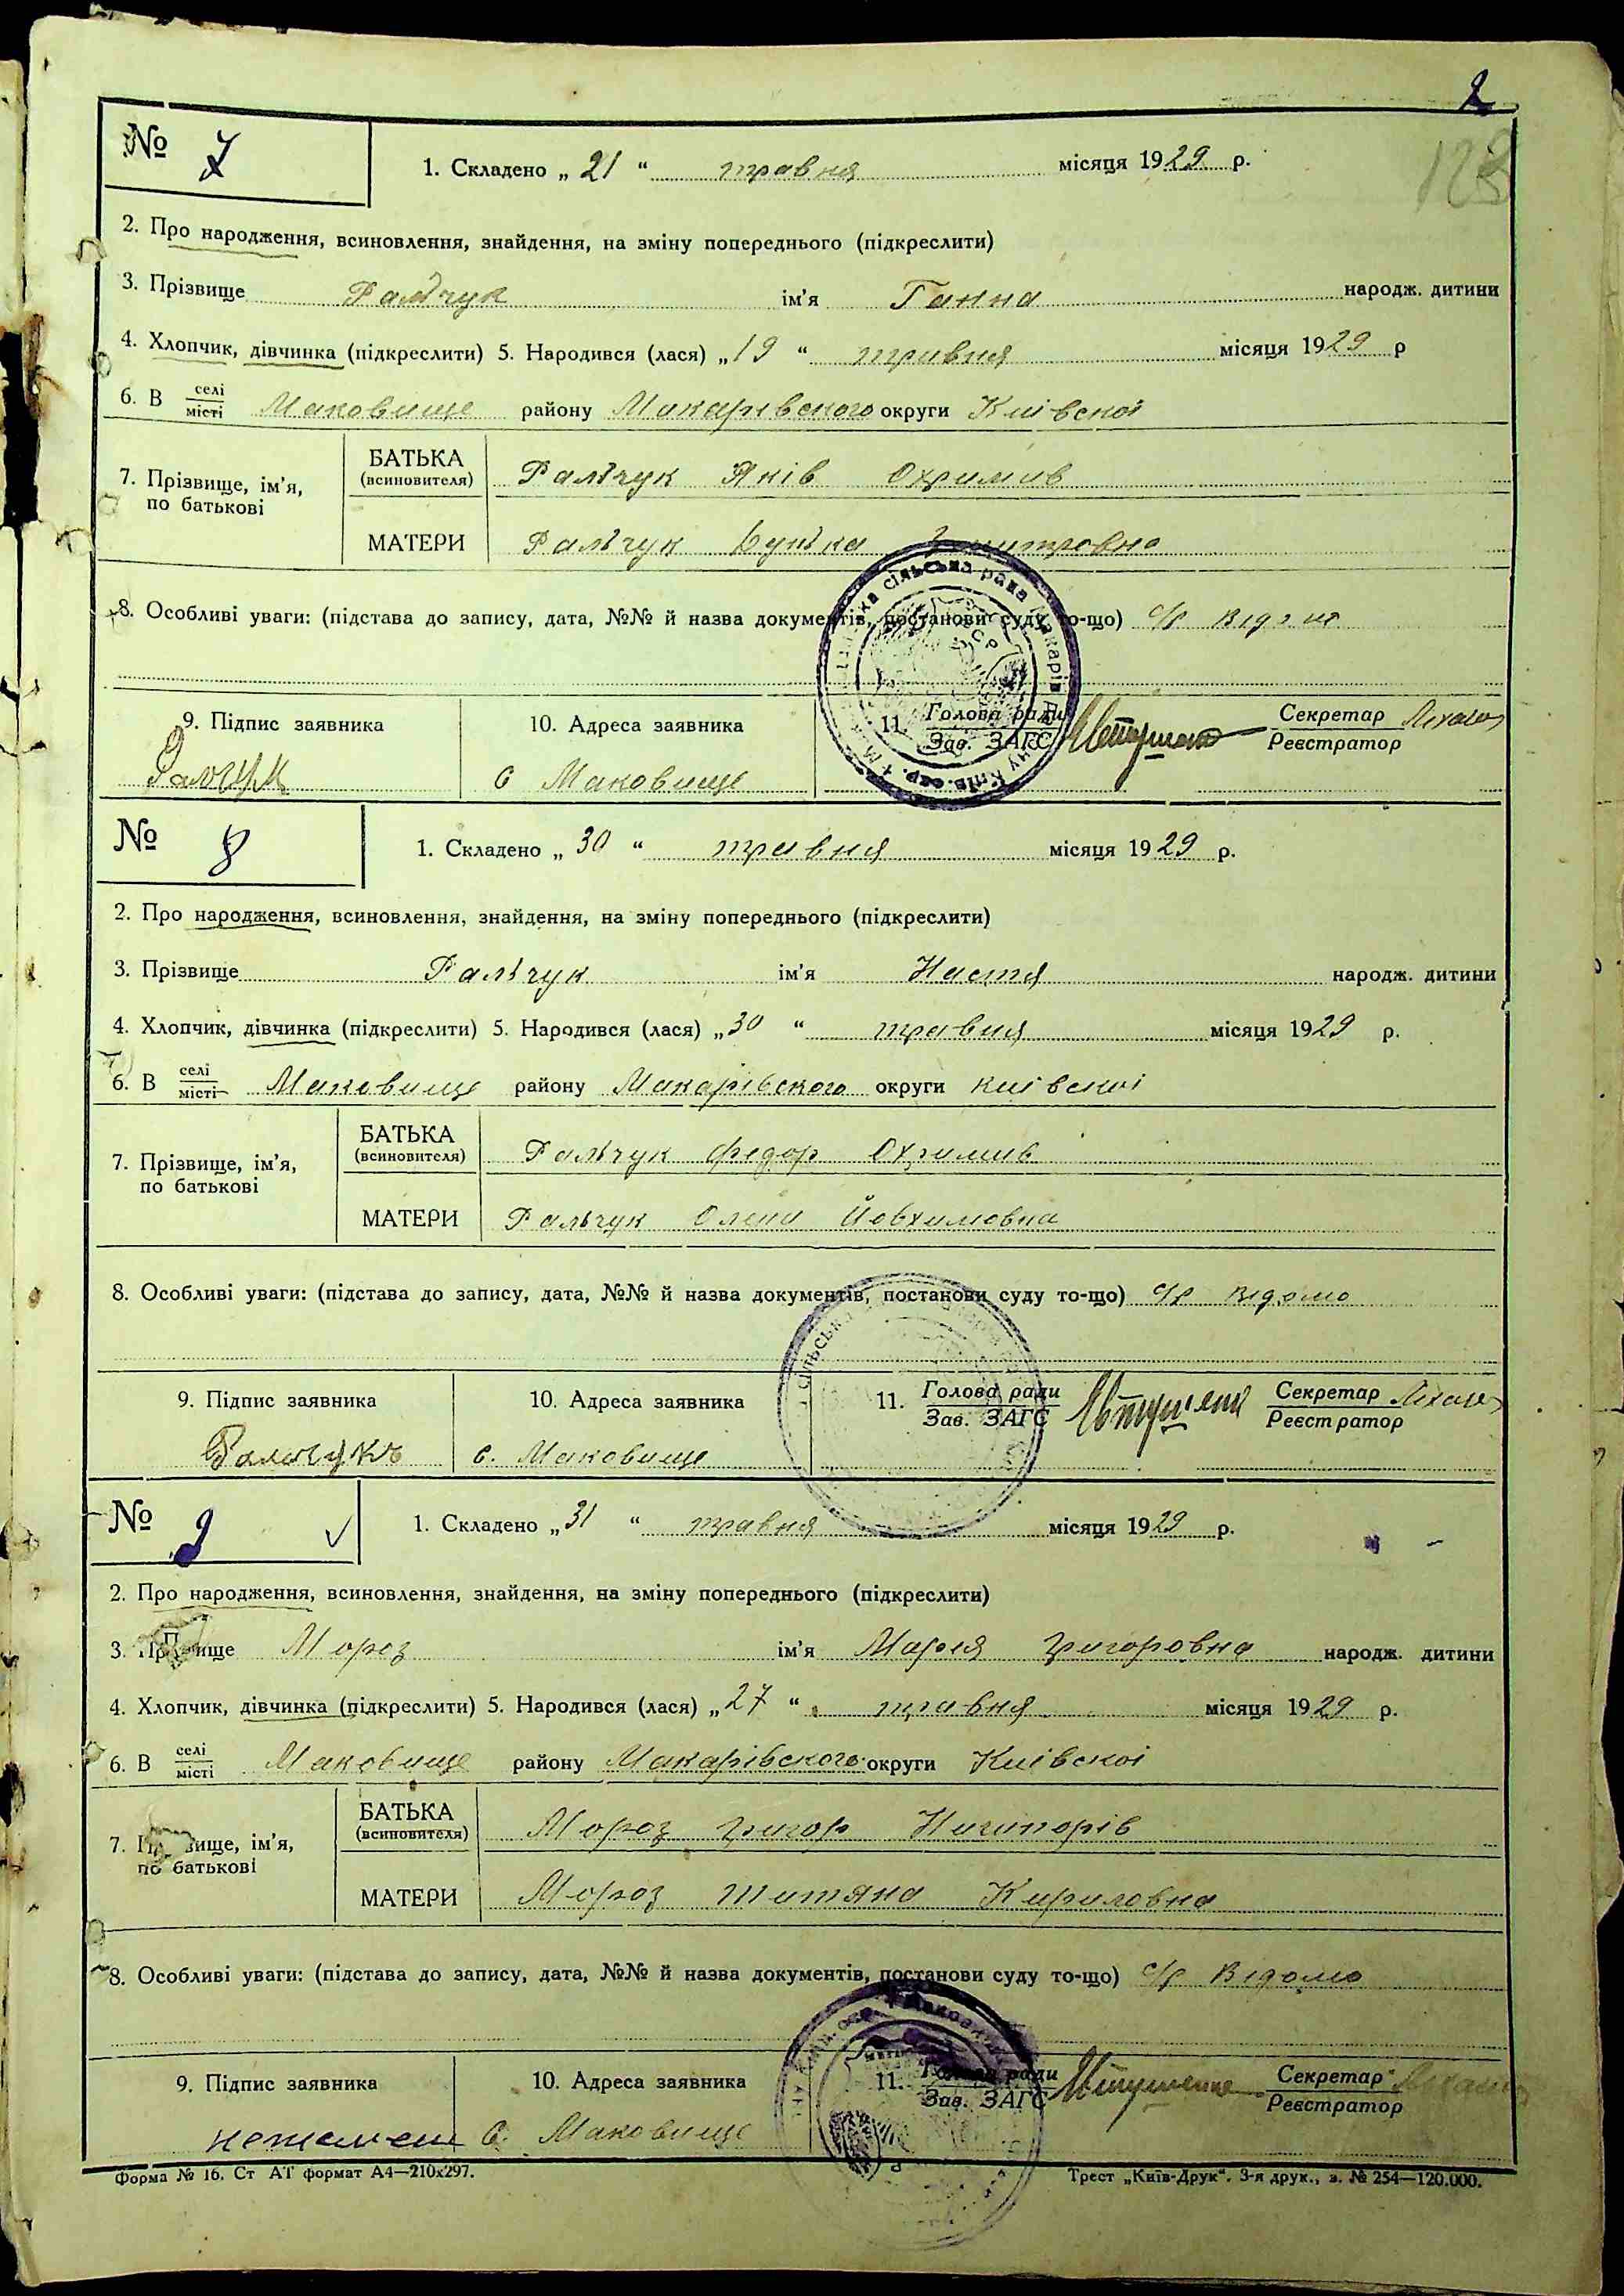 2
128
№ 7
1. Складено „ 21 “ травня місяця 1929 р.
2. Про народження, всиновлення, знайдення, на зміну попереднього (підкреслити)
3. Прізвище Ральчук ім'я Ганна народж. дитини
4. Хлопчик, дівчинка (підкреслити) 5. Народився (лася) „19 “ травня місяця 1929 р
6. В селі місті Маковище району Макарівского округи Київскоі
7. Прізвище, ім'я, по батькові
БАТЬКА (всиновителя) Ральчук Яків Охримив
МАТЕРИ Ральчук Дмитровна
8. Особливі уваги: (підстава до запису, дата, №№ й назва документів, постанови суду то-що) с/р
9. Підпис заявника 10. Адреса заявника 11. Голова ради Зав. ЗАГС Секретар Реєстратор
Ралчук с Маковище
№ 8
1. Складено „ 30 “ травня місяця 1929 р.
2. Про народження, всиновлення, знайдення, на зміну попереднього (підкреслити)
3. Прізвище Ральчук ім'я Настя народж. дитини
4. Хлопчик, дівчинка (підкреслити) 5. Народився (лася) „30 “ травня місяця 1929 р.
6. В селі місті Маковище району Макарівского округи Київскоі
7. Прізвище, ім'я, по батькові
БАТЬКА (всиновителя) Ральчук Федор Охримив
МАТЕРИ Ральчук Олена Йовхимовна
8. Особливі уваги: (підстава до запису, дата, №№ й назва документів, постанови суду то-що) с/р Відомо
9. Підпис заявника 10. Адреса заявника 11. Голова ради Зав. ЗАГС Секретар Реєстратор
Ральчукъ с. Маковище
№ 9
1. Складено „31 “ травня місяця 1929 р.
2. Про народження, всиновлення, знайдення, на зміну попереднього (підкреслити)
3. Мороз ім'я Мария Григоровна народж. дитини
4. Хлопчик, дівчинка (підкреслити) 5. Народився (лася) „27 “ травня місяця 1929 р.
6. В селі місті Маковище району Макарівского округи Київскоі
7. ім'я, по батькові
БАТЬКА (всиновителя) Мороз Григор Ничипорів
МАТЕРИ Мороз Титяна Кириловна
8. Особливі уваги: (підстава до запису, дата, №№ й назва документів, постанови суду то-що) с/р Відомо
9. Підпис заявника 10. Адреса заявника 11. Голова ради Зав. ЗАГС Секретар Реєстратор
с. Маковище
Форма № 16. Ст АТ формат А4—210х297. Трест „Київ-Друк“. 3-я друк., з. № 254—120.000.